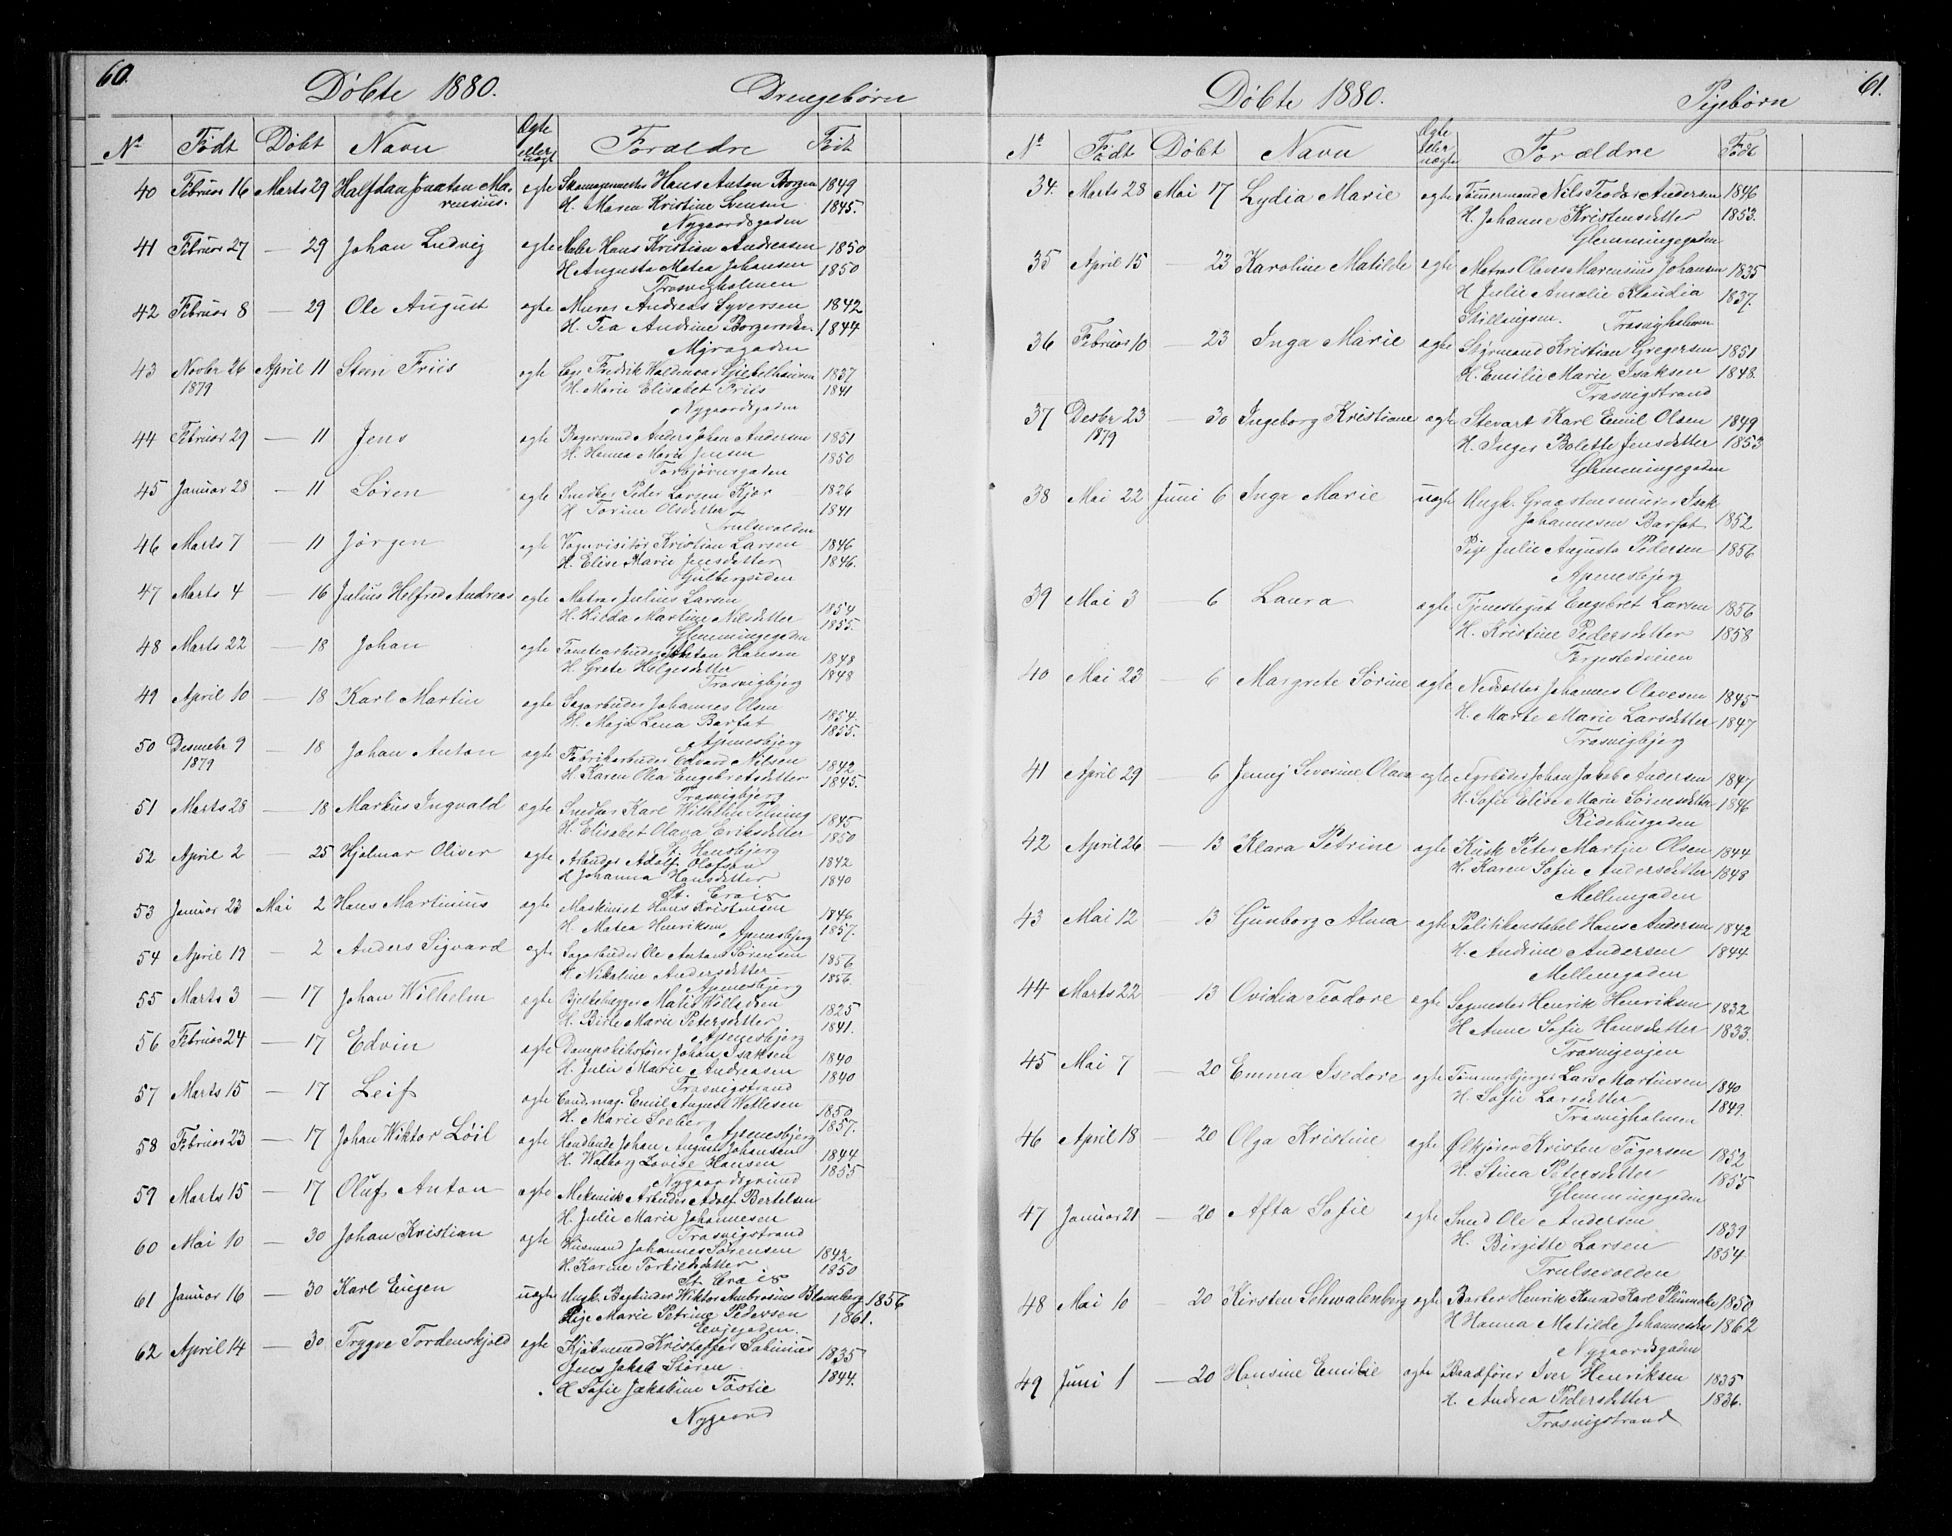 60.
Döbte 1880.
Drengebörn
No Födt Döbt Navn Ægte eller uægt Forældre Födt
40 Februar 16 Marts 29 Halfdan Jonatan Ma- egte Hans Anton Borgen 1849
rensius. H. Maren Kristine Svensen 1845.
Nygaardsgaden
41 Februar 27 — 29 Johan Ludvig egte Maler Hans Kristian Andreasen 1850
H Augusta Matea Johansen 1850
Trosvigholmen
42 Februar 8 — 29 Ole August egte Murer Andreas Syversen 1842
H. Tea Andrine 1844
Myragaden
43 Novbr 26 April 11 Steen Friis egte Fredrik Waldemar 1837
1879 H. Marie Elisabet Friis 1841
Nygaardsgaden
44 Februar 29 — 11 Jens egte Anders Johan Andersen 1851
H. Hanna Marie Jensen 1850
Torbjörnsgaden
45 Januar 28 — 11 Sören egte Snedker Peder Larsen Kjær 1826
H Torine Olsdetter 1841
Trulsvolden
46 Marts 7 — 11 Jörgen egte Vognvisitör Kristian Larsen 1846
H. Elise Marie Jensdetter 1846.
Gulbergsiden
47 Marts 4 — 16 Julius Helfred Andreas egte Matros Julius Larsen 1854
H. Hilda Martine Nilsdetter 1855.
Glemmingegaden
48 Marts 22 — 18 Johan egte Tomtearbeider Anton Hansen 1848
H Grete Helgesdetter 1848
Trosvigbjerg
49 April 10 — 18 Karl Martin egte Sagarbeider Johannes Olsen 1854.
H. Maja Lena Barfot 1855.
Apenesbjerg
50 Desmebr 9 — 18 Johan Anton egte Fabrikarbeider Edvard Nilsen 1842
1879 H Karen Olea Engebretsdetter 1845.
Trosvigbjerg
51 Marts 28 — 18 Markus Ingvald egte Snedker Karl Wilhelm 1845
H. Elisabet Olava Eriksdetter 1850
52 April 2 25 Hjalmar Oliver egte Arbeider Adolf Olofson 1842
H Johanna Hansdetter 1840
St. Croix
53 Januar 23 Mai 2 Hans Martinius egte Maskinist Hans Kristensen 1846
H. Matea Henriksen Apenesbjerg 1857.
54 April 19 — 2 Anders Sigvard egte Sagarbeider Ole Antons Sörensen 1856
H. Nikoline Andersdetter 1856.
Apenesbjerg
55 Marts 3 — 17 Johan Wilhelm egte 1825
H. Birte Marie Petersdetter 1841.
Apenesbjerg
56 Februar 24 — 17 Edvin egte Johan Isaksen 1840
H. Julie Marie Andreasen 1840
Trosvigstrand
57 Marts 15 — 17 Leif egte Emil August 1850
H. Marie Apenesbjerg 1857.
58 Februar 23 — 17 Johan Wiktor egte Johan August Johansen 1844
H. Walborg Lovise Hansen 1855
59 Marts 15 — 17 Oluf Anton egte Mekanisk Arbeider Adolf Bertelsen
H. Julie Marie Johannesen
Trosvigstrand
60 Mai 10 — 30 Johan Kristian egte Husmand Johannes Sörensen 1842
H. Karine Torkildsdetter 1850
St. Croix
61 Januar 16 — 30 Karl Eugen uegte Ungk. Wiktor Ambrosius Blomberg 1856
Pige Marie Petrine Pedersen 1861.
62 April 14 — 30 Trygve Tordenskjold egte Kjöbmand Kristoffer Sabinus 1835
Jens Jakob Stören
H Sofie Jakobine Tostie 1844.
Nygaard
61.
Döbte 1880.
Pigebörn
No Födt Döbt Navn Ægte eller uægte Forældre Födt
34. Marts 28 Mai 17 Lydia Marie egte Tömmermand Nils Teodor Andersen 1846
H. Johanne Kristensdetter 1853.
Glemmingegaden
35 April 15 — 23 Karoline Matilde egte Matros Olaves Marensius Johansen 1835
H Julie Amalie Klaudia 1837.
Stillaugsen. Trosvigholmen
36 Februar 10 — 23 Inga Marie egte Styrmand Kristian Gregersen 1851
H. Emilie Marie Isaksen 1848.
Trosvigstrand
37 Desbr 23 — 30 Ingeborg Kristiane egte Stevart Karl Emil Olsen 1849
1879 H. Inger Bolette Jensdetter 1853
Glemmingegaden
38 Mai 22 Juni 6 Inga Marie uegte Ungk. Graastensmurer Isak
Johannesen Barfot 1852
Pige Julie Augusta Pedersen 1856
Apenesbjerg
39 Mai 3 — 6 Laura egte Tjenestegut Engebret Larsen 1856
H. Kristine Pedersdetter 1858
Færgestedveien
40 Mai 23 — 6 Margrete Sörine egte Johannes Olavesen 1845
H. Marte Marie Larsdetter 1847
Trosvigbjerg
41 April 29 — 6 Jenny Severine Olava egte Johan Jakob Andersen 1847
H. Sofie Elise Marie Sörensdetter 1846
Ridehusgaden
42 April 26 — 13 Klara Petrine egte Kusk Peter Martin Olsen 1844
H. Karen Sofie Andersdetter 1848
Mellemgaden
43 Mai 12 — 13 Gunborg Alma egte Politikonstabel Hans Andersen 1842
H. Andrine Andersen 1844
Mellemgaden
44 Marts 22 — 13 Ovidia Teodore egte Sagmester Henrik Henriksen 1832
H Anne Sofie Hansdetter 1833.
45 Mai 7 — 20 Emma Isedore egte Lars Martinsen 1840
H. Sofie Larsdetter 1849.
Trosvigholmen
46 April 18 — 20 Olga Kristine egte Ølkjörer Kristen Tögersen 1852
H. Stina Petersdetter 1855
Glemmingegaden
47 Januar 21 — 20 Afta Sofie egte Smed Ole Andersen 1839
H. Birgitte Larsen 1854
Trulsevolden
48 Mai 10 — 20 Kirsten Schwalenberg egte Barber Henrik Konrad Karl 1850
H Hanna Matilde Johannesdtr 1862
Nygaardsgaden
49 Juni 1 — 20 Hansine Emilie egte Brödförer Iver Henriksen 1835
H. Andrea Pedersdetter 1836.
Trosvigstrand